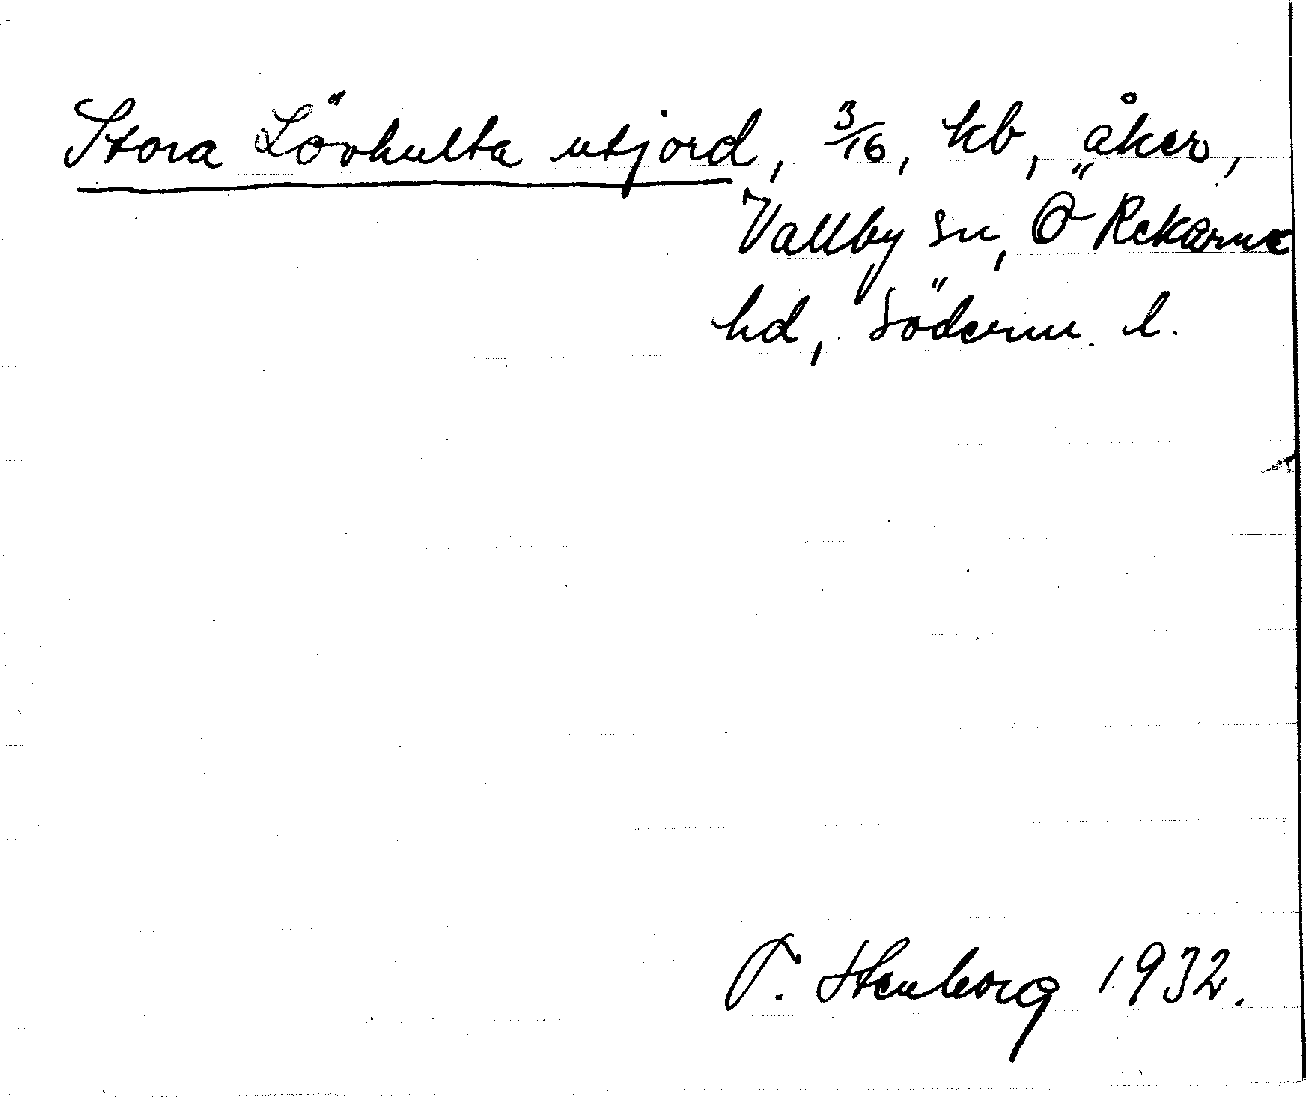 Stora Lövhulta utjord, 3/16, kb, åker,
Vallby sn, Ö Rekarne
hd, Söderm. l.
T. Stenborg 1932.